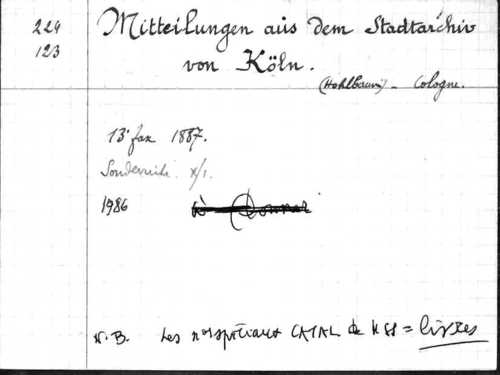 224
123
Mitteilungen aus dem Stadtarchiv
von Köln.
(Höhlbaum) - Cologne.
13e fasc 1887.
Sonderreihe. X/1.
1986
N.B. Les nos spéciaux CATAL de MSS = livres